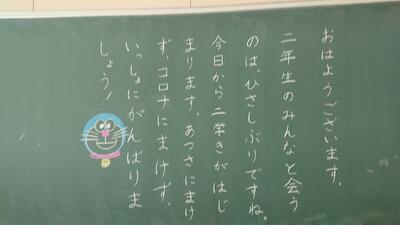 おはようございます。
二年生のみんなと会う
のは、ひさしぶりですね。
今日から二学きがはじ
まります。あつさにまけ
ず、コロナにまけず、
いっしょにがんばりま
しょう!